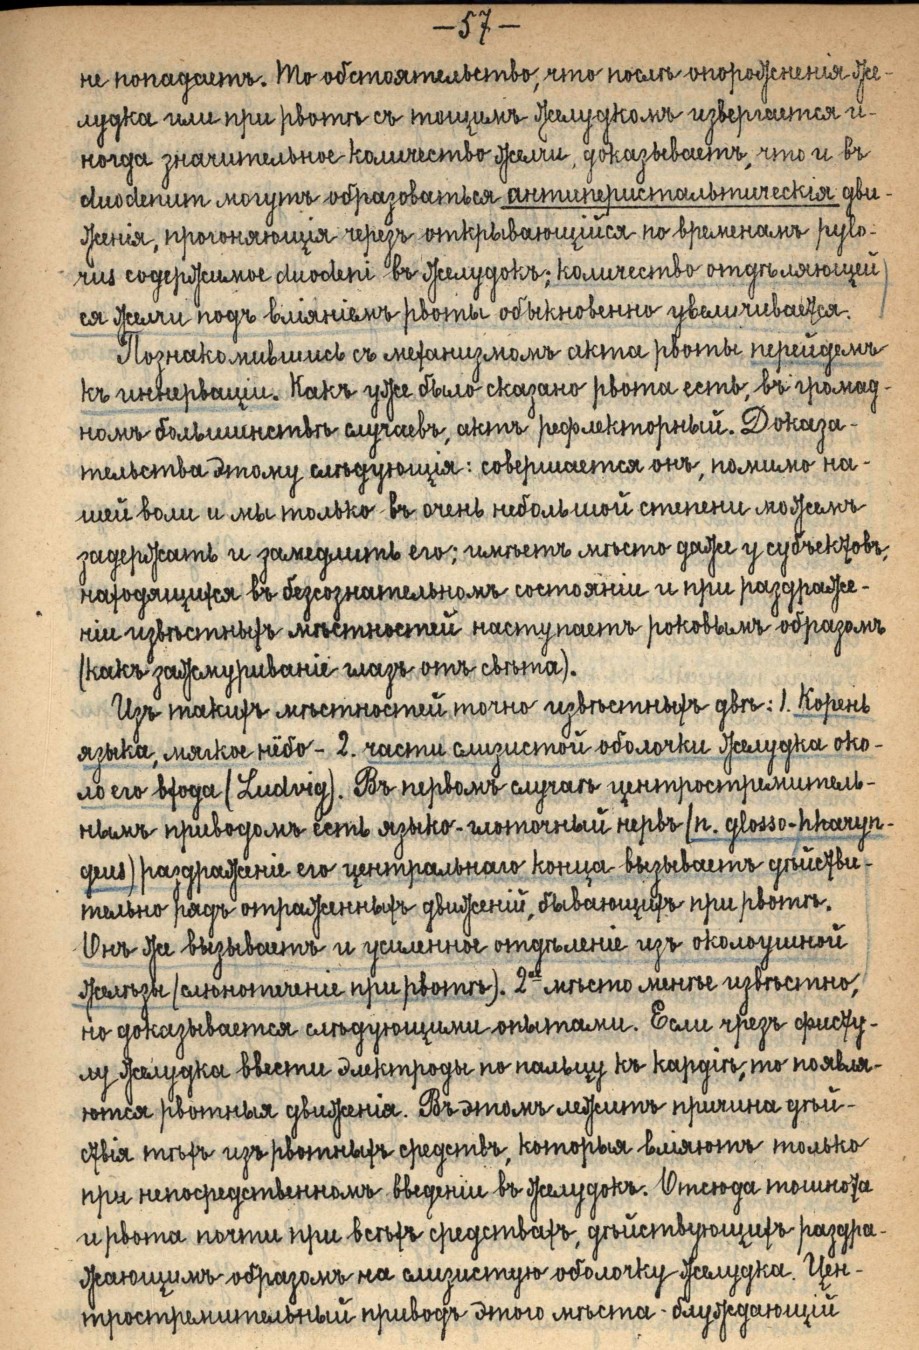 — 57 —
не попадаетъ. То обстоятельство, что послѣ опорожненія же-
лудка или при рвотѣ съ тощимъ желудкомъ извергается и-
ногда значительное количество желчи, доказываетъ, что и въ
duodenum могутъ образоваться антиперистальтическія дви-
женія, прогоняющія черезъ открывающійся по временамъ pylo-
rus содержимое duodeni въ желудокъ; количество отдѣляющей
ся желчи подъ вліяніемъ рвоты обыкновенно увеличивается.
Познакомившись съ механизмомъ акта рвоты перейдемъ
къ иннерваціи. Какъ уже было сказано рвота есть, въ громад-
номъ большинствѣ случаевъ, актъ рефлекторный. Доказа-
тельства этому слѣдующія: совершается онъ, помимо на-
шей воли и мы только въ очень небольшой степени можемъ
задержать и замедлить его; имѣетъ мѣсто даже у субъектовъ,
находящихся въ безсознательномъ состояніи и при раздраже-
ніи извѣстныхъ мѣстностей наступаетъ роковымъ образомъ
(какъ зажмуриваніе глазъ отъ свѣта).
Изъ такихъ мѣстностей точно извѣстныхъ двѣ: 1. Корень
языка, мягкое нёбо - 2. части слизистой оболочки желудка око-
ло его входа (Ludvig). Въ первомъ случаѣ центростремитель-
нымъ приводомъ есть языко-глоточный нервъ (n. glosso-hharyn-
geus) раздраженіе его центральнаго конца вызываетъ дѣйстви-
тельно рядъ отраженныхъ движеній, бывающихъ при рвотѣ.
Онъ же вызываетъ и усиленное отдѣленіе изъ околоушной
желѣзы (слюнотеченіе при рвотѣ). 2ое мѣсто менѣе извѣстно,
но доказывается слѣдующими опытами. Если чрезъ фисту-
лу желудка ввести электроды по пальцу къ кардіѣ, то появля-
ются рвотныя движенія. Въ этомъ лежитъ причина дѣй-
ствія тѣхъ изъ рвотныхъ средствъ, которыя вліяютъ только
при непосредственномъ введеніи въ желудокъ. Отсюда тошнота
и рвота почти при всѣхъ средствахъ, дѣйствующихъ раздра-
жающимъ образомъ на слизистую оболочку желудка. Цен-
тростремительный приводъ этого мѣста - блуждающій